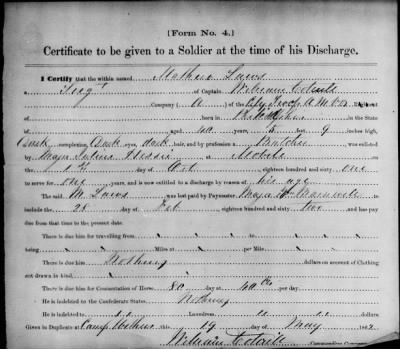 [FORM NO. 4.]
Certificate to be given to a Soldier at the time of his Discharge.
I Certify that the within named
a Sergt of Captain William
Company ( A ) of the City Troop
, born in in the State
of , aged 5 9 inches high,
Dark complexion, Dark eyes, dark hair, and by profession a Butcher was enlisted
by Major Julius Hessee at Mobile
on the day of Oct eighteen hundred and sixty one
to serve for one years, and is now entitled to a discharge by reason of his age
The said M. was last paid by Paymaster Major
include the 28 day of Feb eighteen hundred and sixty two, and has pay
due from that time to the present date.
There is due him for travelling from
being Miles at per Mile
There is due him Nothing dollars on account of Clothing
not drawn in kind.
There is due him for Commutation of Horse 80 day at 40 cts per day.
He is indebted to the Confederate States Nothing
He is indebted to Laundress
Given in Duplicate at Camp this 19 day of May 1862
William
Commanding Company